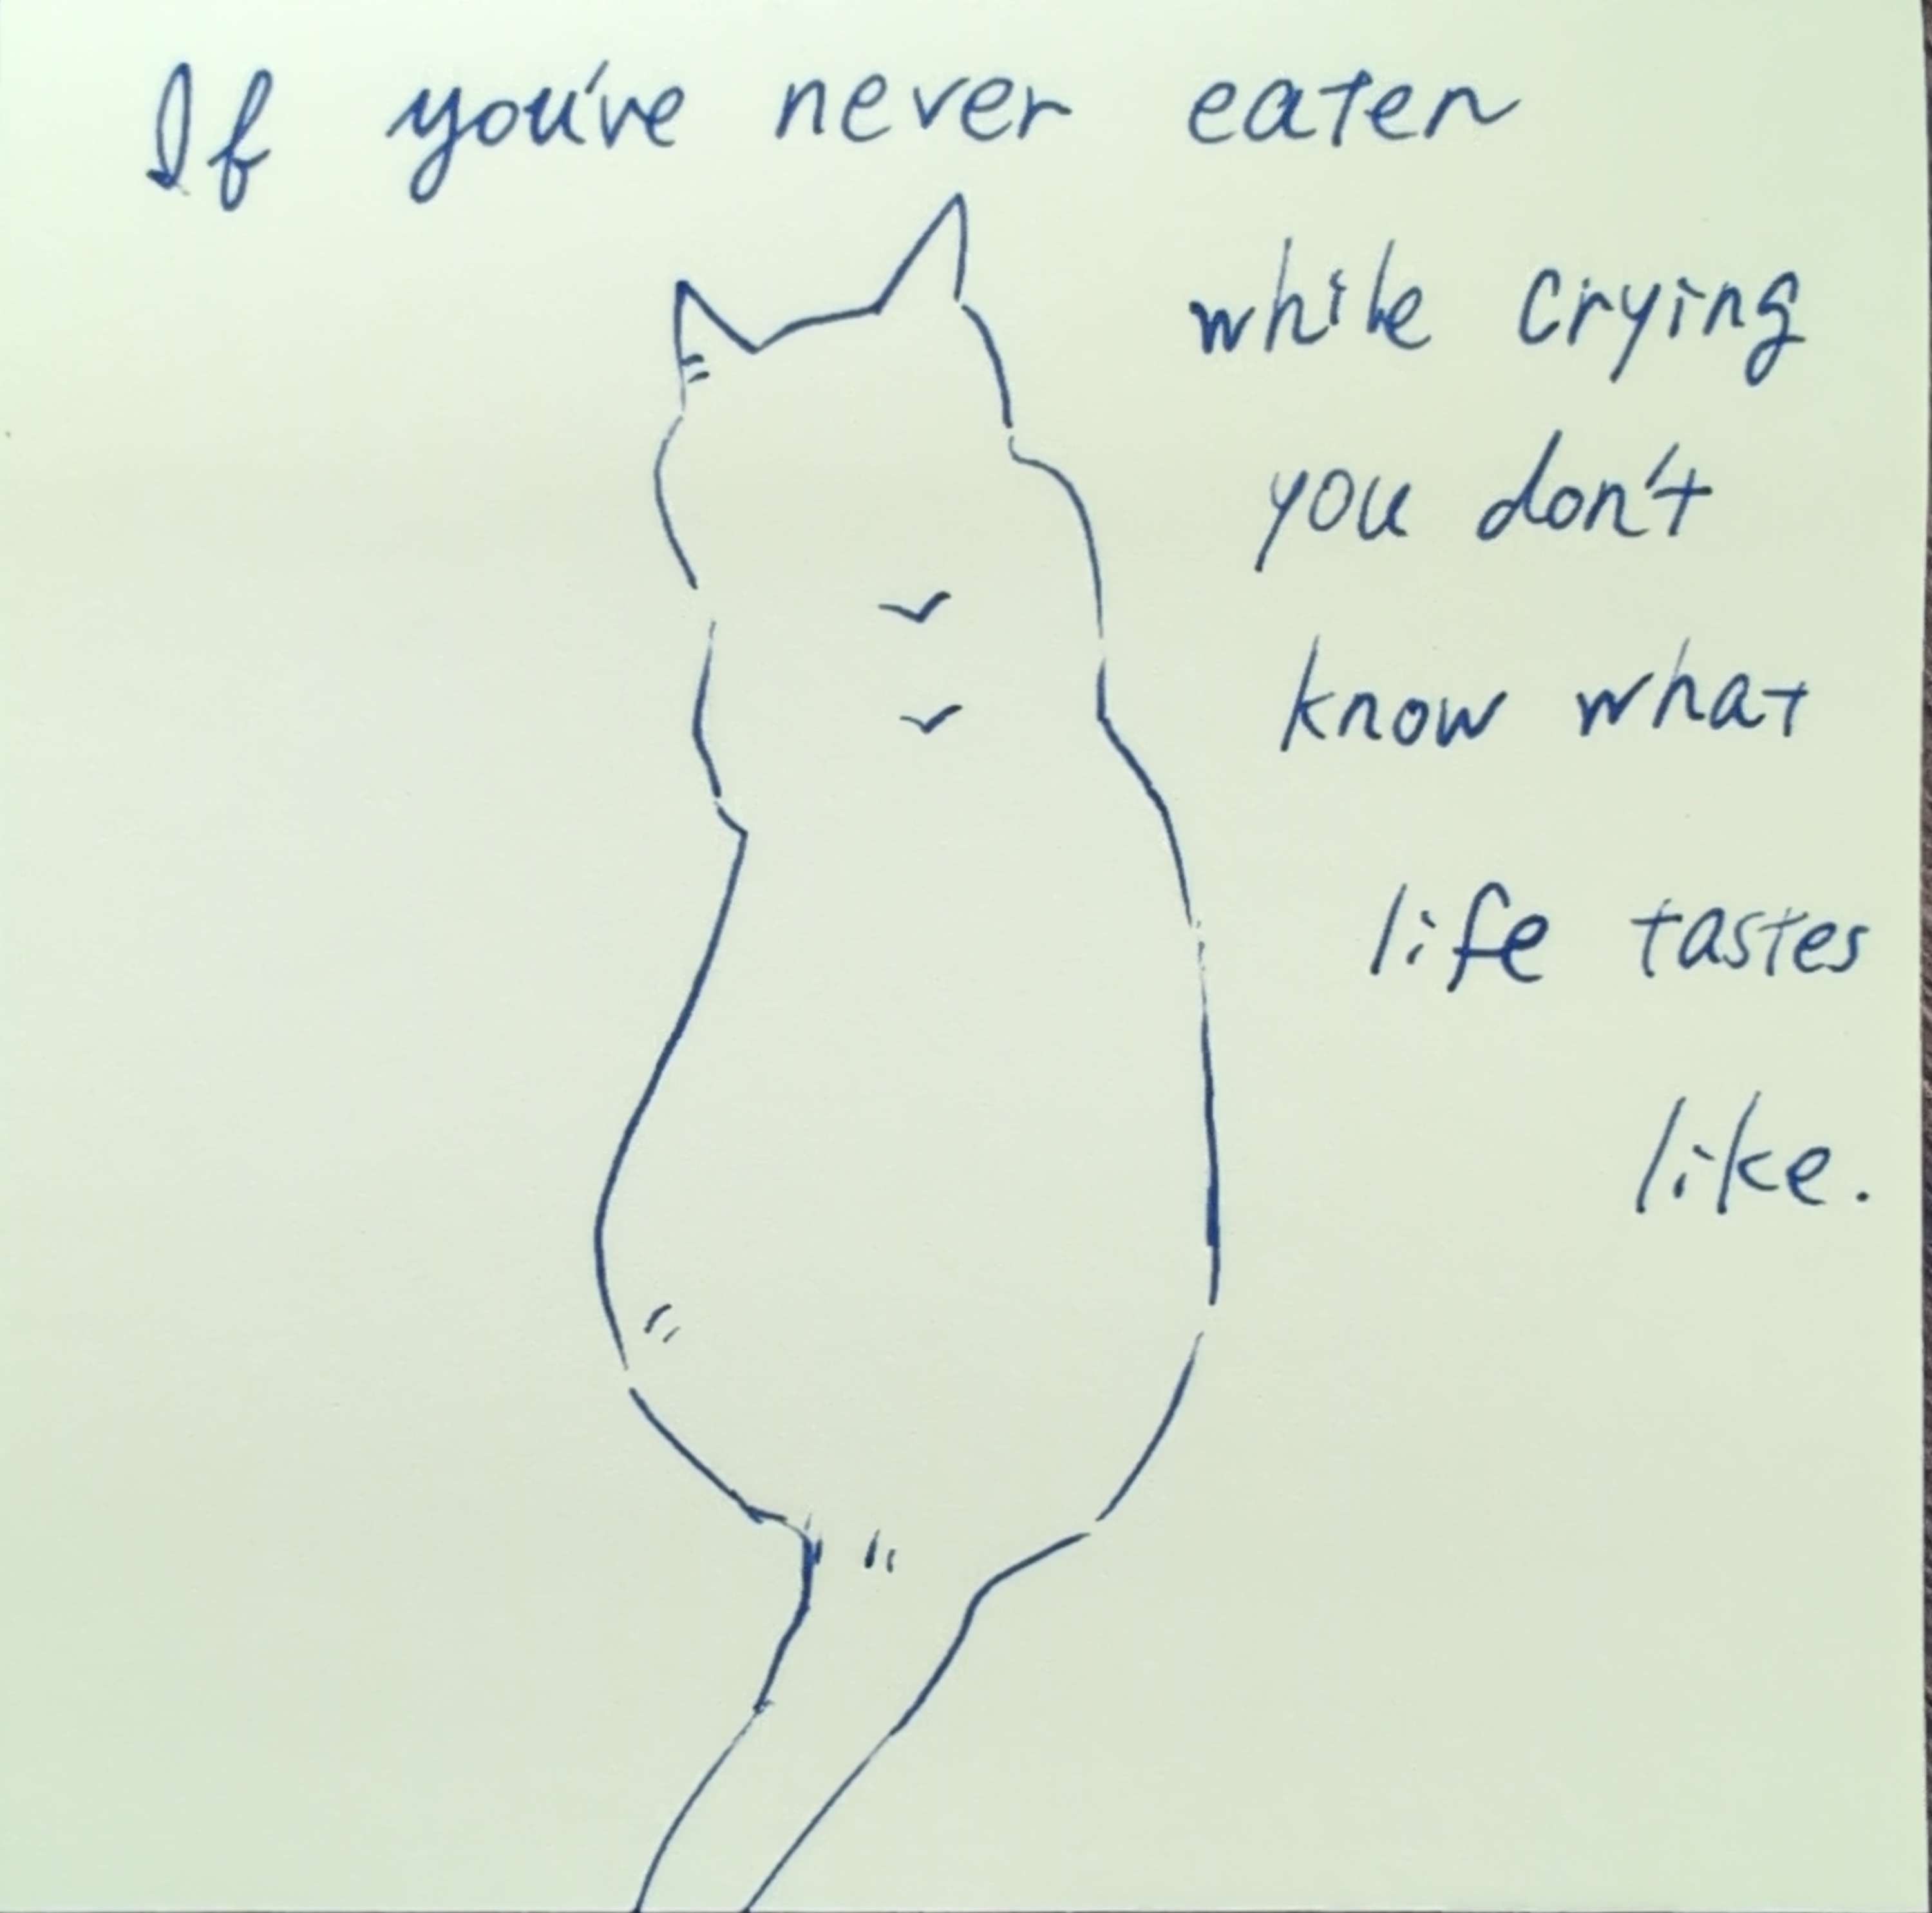 If you've never eaten
while crying
you don't
know what
life tastes
like.